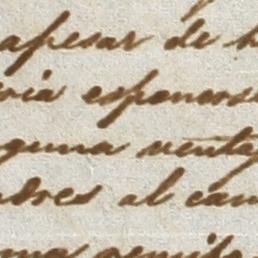 apesar de h
ria esponerse
guna ventaj
dres al cam